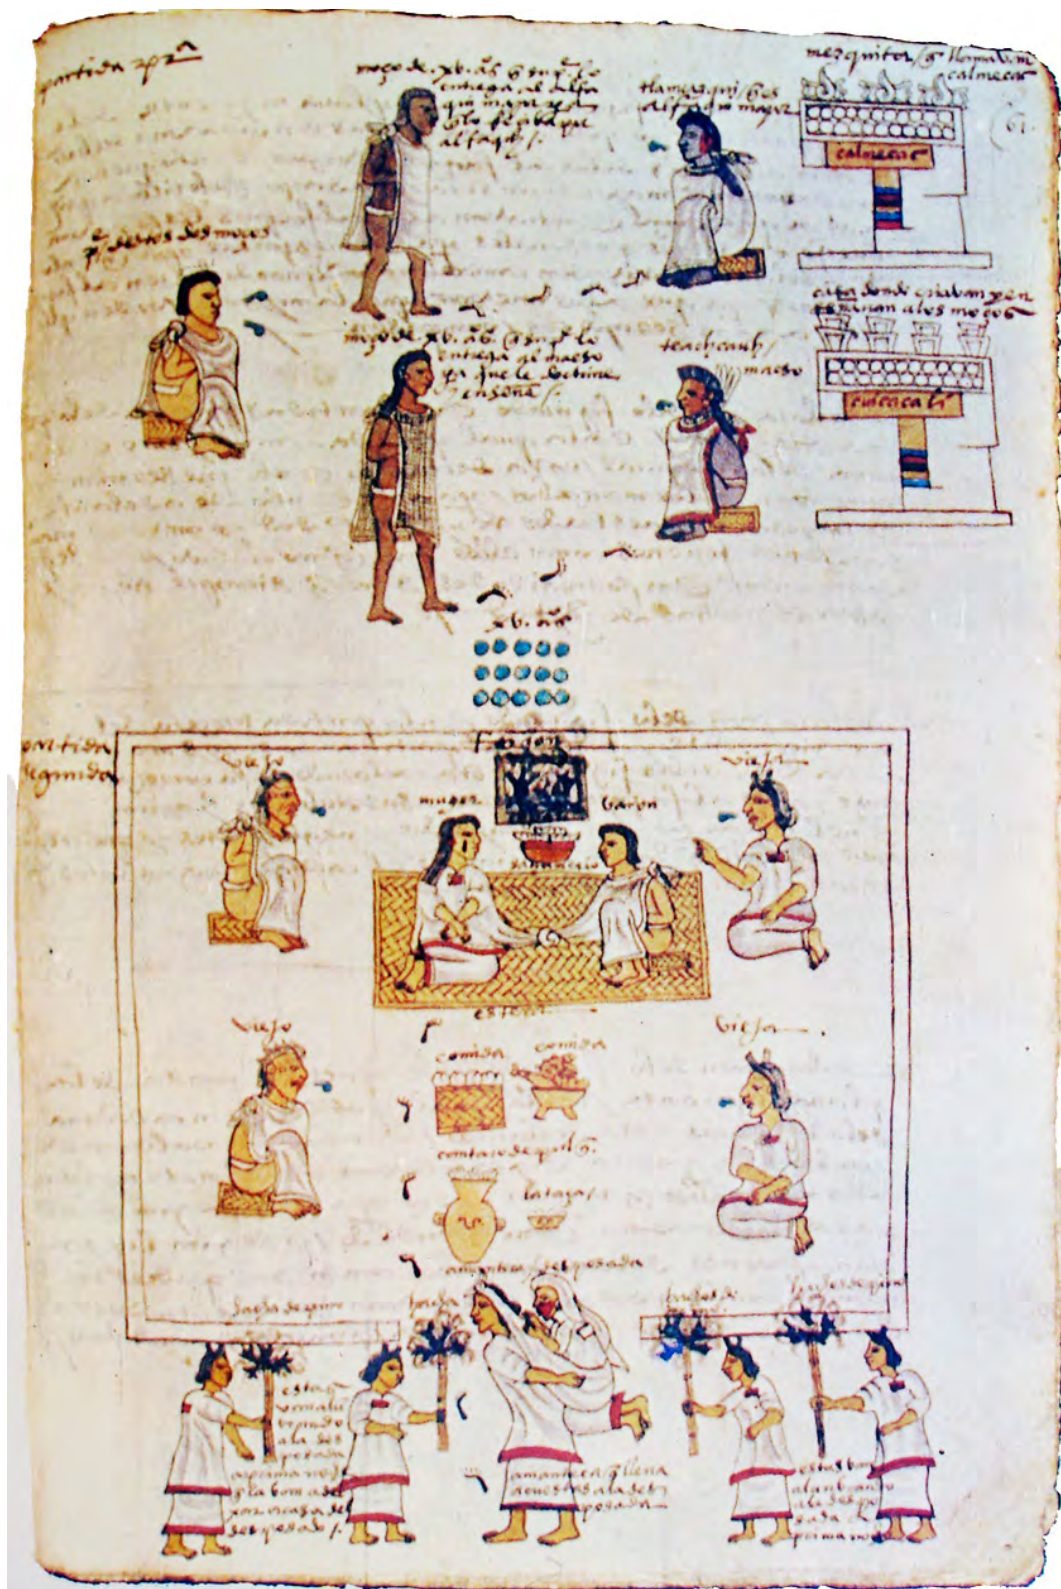 partida 1ᵃ
moço de xv. aͦs q̃ su pͤ lo
entrega al alfa
qui mayor pa
alfaqͥ
tlamazqui / q̃ es
alfaqui mayor
mezquita / q̃ llamavan
calmecac
61.
calmecac
pͤ destos dos moços
moço de xv. aͦs. q̃ su pͤ lo
entrega al maeso
pa que le doctrine
enseñe /.
teachcauh /
maeso
casa donde criavan y en
señavan a los moços
cuicacali
xv. aͦs
partida
segunda
fogon
viejo
vieja
muger
varon
estera
viejo
vieja
comida
comida
cantaro de pulq̃.
la taça /.
amanteca / desposada
hacha de
hacha
haches de
haches de
estas
van alu
brando
a la des
posada
a prima noche
q̃ la van a de
xar a casa del
desposado /.
amanteca q̃ lleva
a cuestas a la des
posada
estas van
alunbrando
a la despo
sada a
prima noche